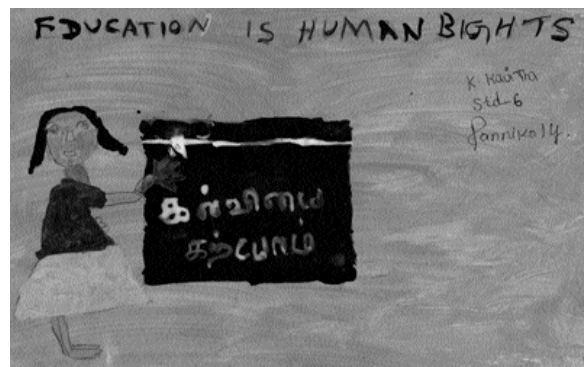 EDUCATION IS HUMAN BIGHTS
K Kavitha
Std-6
Pannikoly.
கல்வியை
கற்போம்